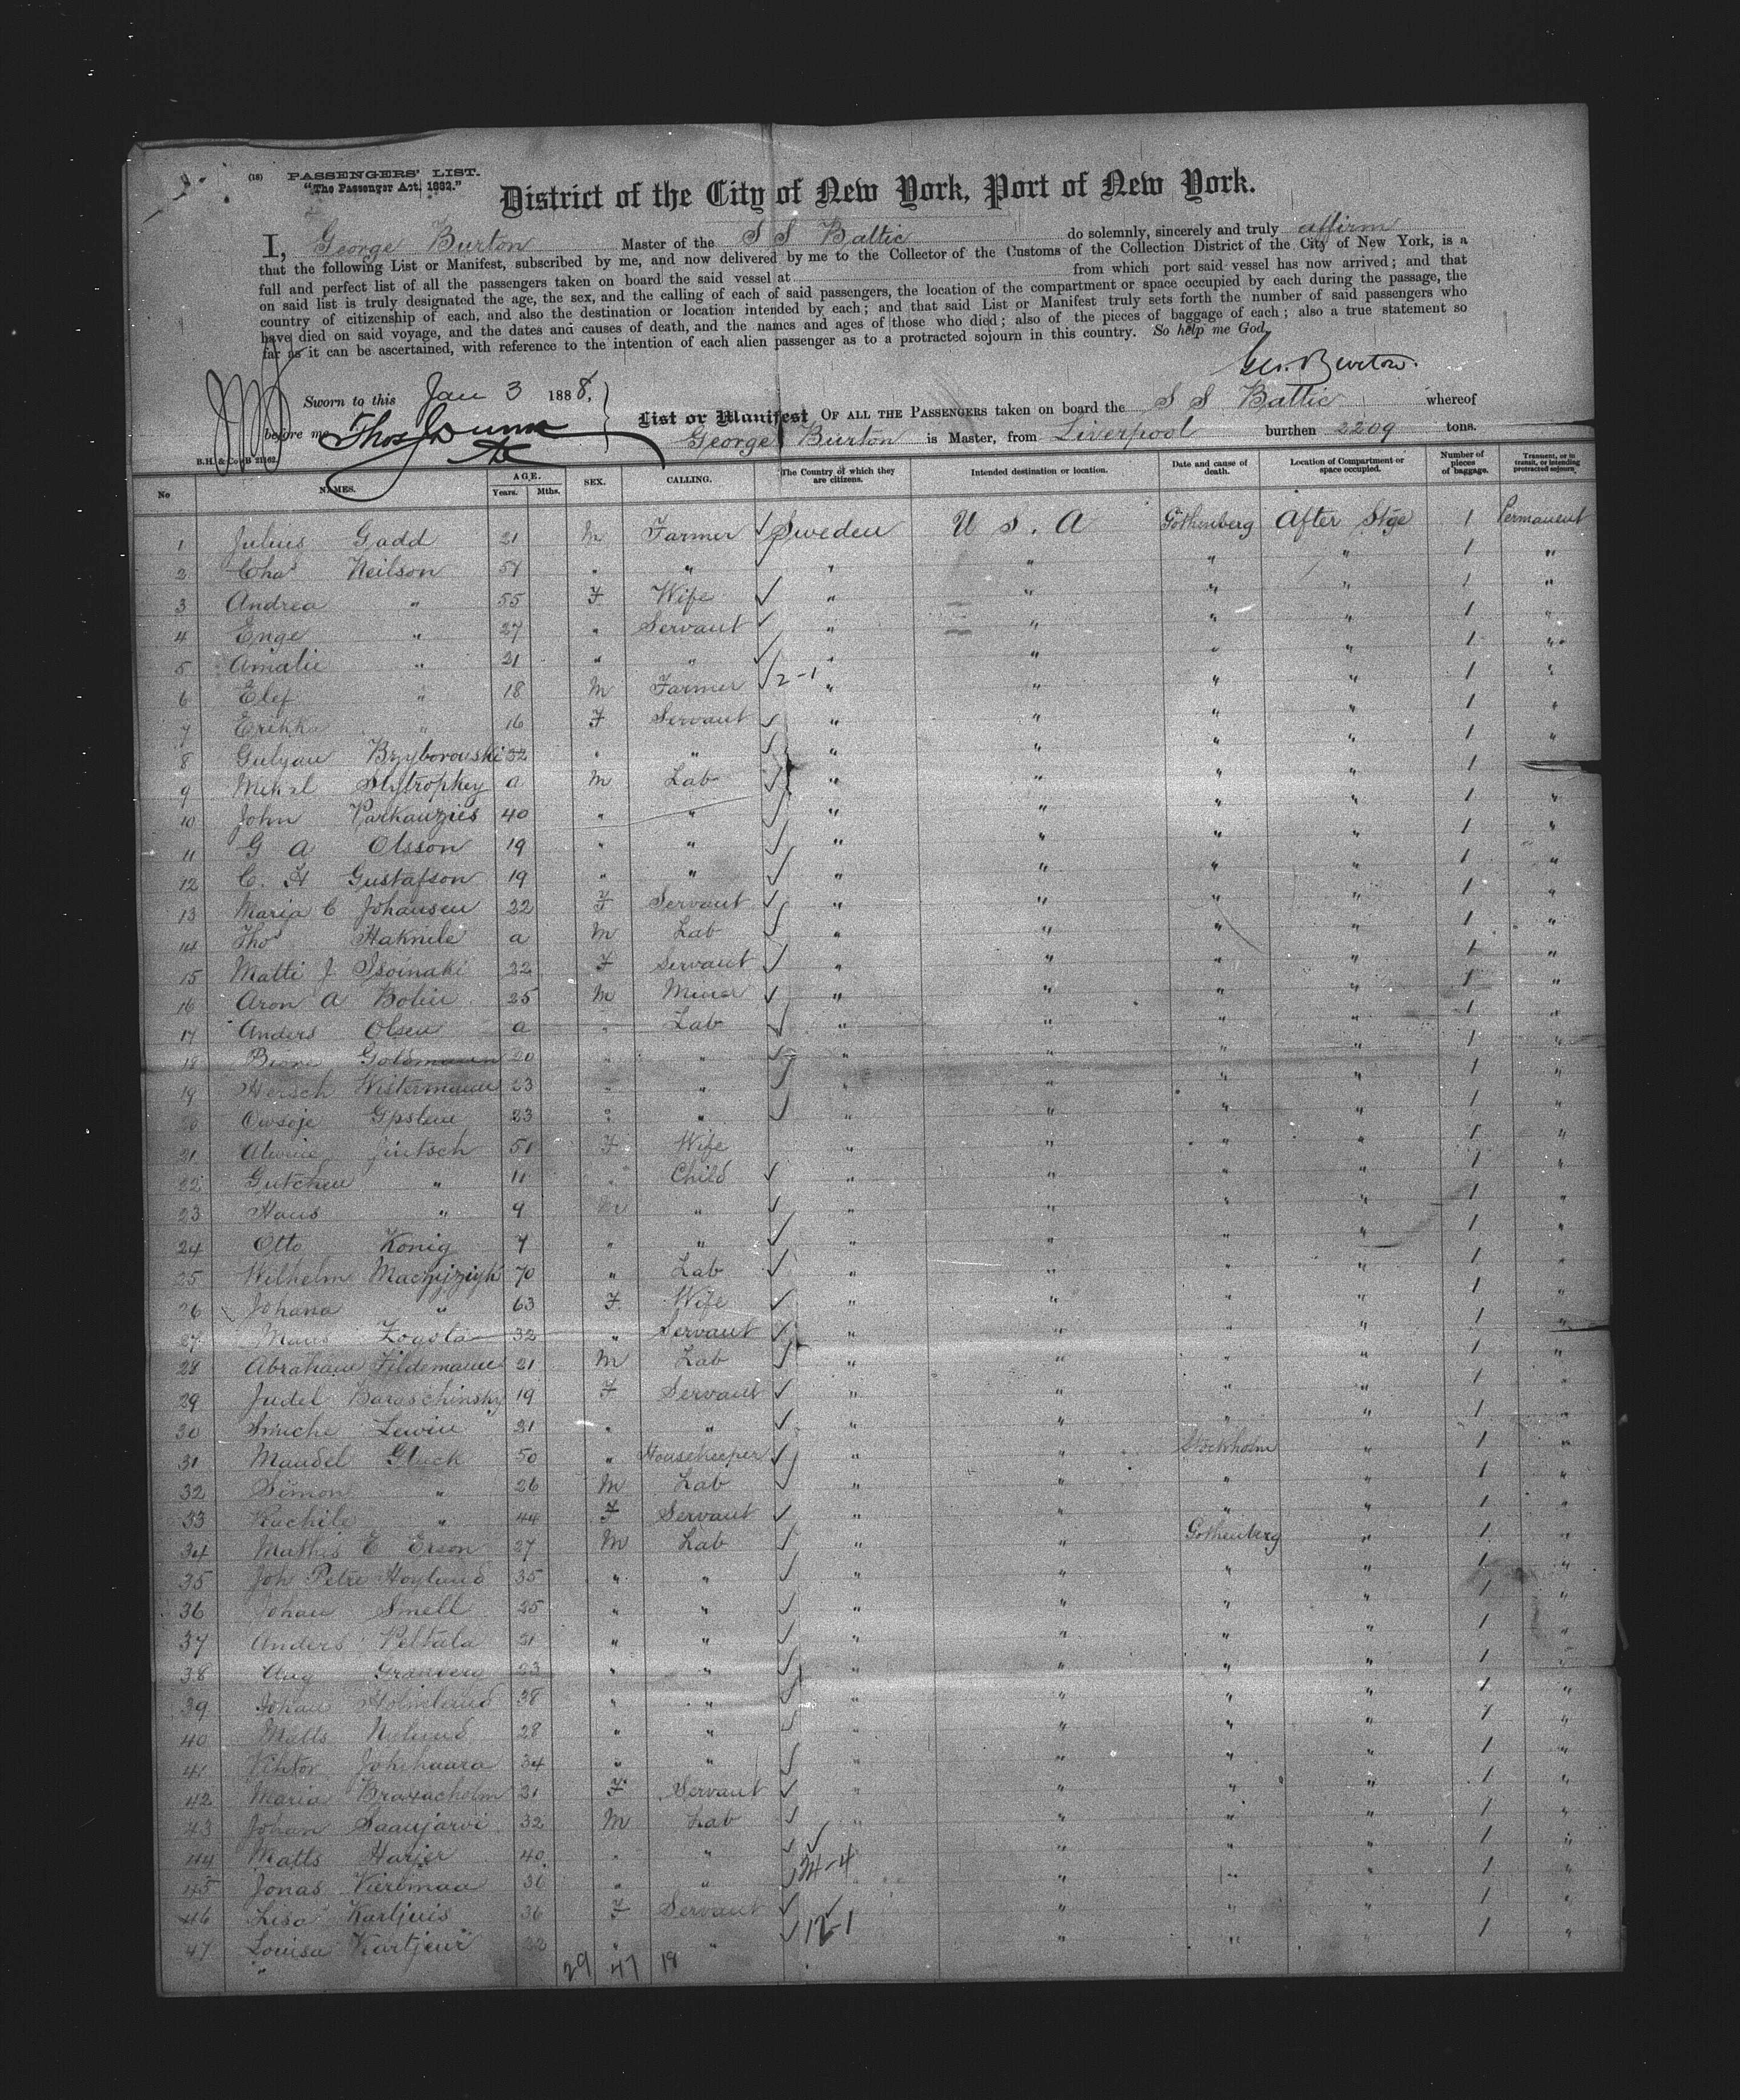 (18) PASSENGERS' LIST.
"The Passenger Act, 1882."
District of the City of New York, Port of New York.
I, George Burton Master of the S S Baltic do solemnly, sincerely and truly affirm
that the following List or Manifest, subscribed by me, and now delivered by me to the Collector of the Customs of the Collection District of the City of New York, is a
full and perfect list of all the passengers taken on board the said vessel at from which port said vessel has now arrived; and that
on said list is truly designated the age, the sex, and the calling of each of said passengers, the location of the compartment or space occupied by each during the passage, the
country of citizenship of each, and also the destination or location intended by each; and that said List or Manifest truly sets forth the number of said passengers who
have died on said voyage, and the dates and causes of death, and the names and ages of those who died; also of the pieces of baggage of each; also a true statement so
far as it can be ascertained, with reference to the intention of each alien passenger as to a protracted sojourn in this country. So help me God.
Geo. Burton.
Sworn to this Jan 3 1888,
before me
List or Manifest OF ALL THE PASSENGERS taken on board the S S Baltic whereof
George Burton is Master, from Liverpool burthen 2209 tons.
No NAMES. AGE. Years. Mths. SEX. CALLING. The Country of which they are citizens. Intended destination or location. Date and cause of death. Location of Compartment or space occupied. Number of pieces of baggage. Transient, or in transit, or intending protracted sojourn
1 Julius Gadd 21 M Farmer Sweden U S. A Gothenberg After Stge 1 Permanent
2 Chas Neilson 51 " " " " " " 1 "
3 Andrea " 55 F Wife " " " " 1 "
4 Enge " 27 " Servant " " " " 1 "
5 Amalie " 21 " " " " " " 1 "
6 Elef " 18 M Farmer 2-1 " " " " 1 "
7 Erikka " 16 F Servant " " " " 1 "
8 Gulyan Bzyborouski 32 " " " " " " 1 "
9 Mikal a M Lab " " " " 1 "
10 John Parkauzies 40 " " " " " " 1 "
11 G A Olsson 19 " " " " " " 1 "
12 C. H Gustafson 19 " " " " " " 1 "
13 Maria C Johansen 22 F Servant " " " " 1 "
14 Thos Haknile a M Lab " " " " 1 "
15 Matti J Isoinaki 22 F Servant " " " " 1 "
16 Aron A Bolin 25 M Miner " " " " 1 "
17 Anders Olsen a " Lab " " " " 1 "
18 Goldmann 20 " " " " " " 1 "
19 Hersch Westermann 23 " " " " " " 1 "
20 Owsoje Gpsten 23 " " " " " " 1 "
21 Alwine Jintsch 51 F Wife " " " " 1 "
22 Gutchen " 11 " Child " " " " 1 "
23 Hans " 9 M " " " " " 1 "
24 Otto Konig 7 " " " " " " 1 "
25 Wilhelm 70 " Lab " " " " 1 "
26 Johana " 63 F Wife " " " " 1 "
27 Zogola 32 " Servant " " " " 1 "
28 Abraham Fildemann 21 M Lab " " " " 1 "
29 Judel Baraschinsky 19 F Servant " " " " 1 "
30 Smiche Lewin 21 " " " " " " 1 "
31 Maudel Gluck 50 " Housekeeper " " Stockholm " 1 "
32 Simon " 26 M Lab " " " " 1 "
33 Rachile " 44 F Servant " " " " 1 "
34 Mathis E Erson 27 M Lab " " Gothenberg " 1 "
35 Joh Petre Hoylund 35 " " " " " " 1 "
36 Johan Smell 25 " " " " " " 1 "
37 Anders Peltala 21 " " " " " " 1 "
38 Aug Granberg 23 " " " " " " 1 "
39 Johan Holmlund 38 " " " " " " 1 "
40 Matts Nylund 28 " " " " " " 1 "
41 Viktor 34 " " " " " " 1 "
42 Maria 31 F Servant " " " " 1 "
43 Johan Saaujarvi 32 M Lab " " " " 1 "
44 Matts Harjer 40 " " " " " 1 "
45 Jonas Vierimaa 36 " " 34-4 " " " 1 "
46 Lisa Karljuis 36 F Servant " " " 1 "
47 Louisa Kartjeur 22 " " 12-1 " " " 1 "
29 47 18